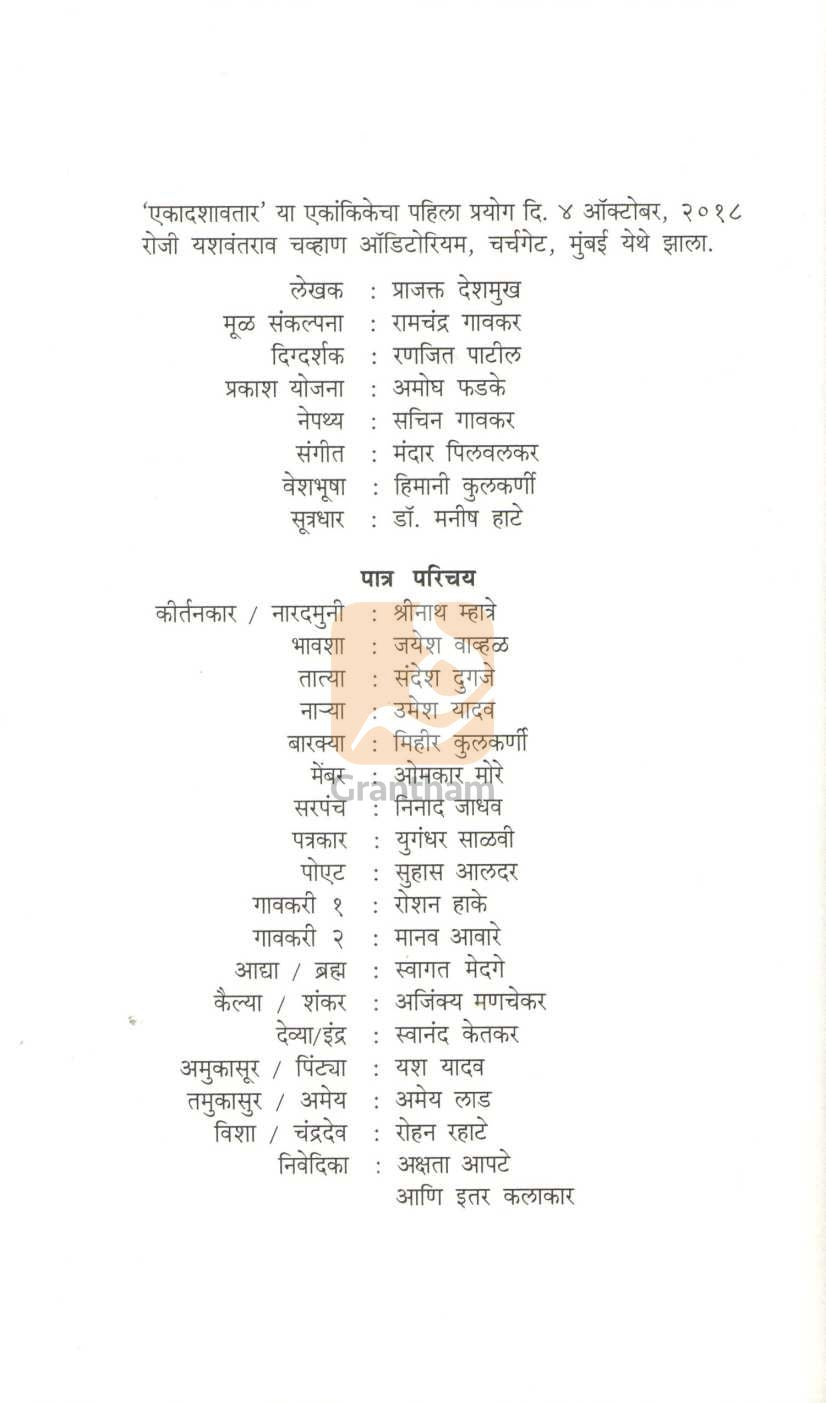 ‘एकादशावतार’ या एकांकिकेचा पहिला प्रयोग दि. ४ ऑक्टोबर, २०१८
रोजी यशवंतराव चव्हाण ऑडिटोरियम, चर्चगेट, मुंबई येथे झाला.
लेखक : प्राजक्त देशमुख
मूळ संकल्पना : रामचंद्र गावकर
दिग्दर्शक : रणजित पाटील
प्रकाश योजना : अमोघ फडके
नेपथ्य : सचिन गावकर
संगीत : मंदार पिलवलकर
वेशभूषा : हिमानी कुलकर्णी
सूत्रधार : डॉ. मनीष हाटे
पात्र परिचय
कीर्तनकार / नारदमुनी : श्रीनाथ म्हात्रे
भावशा : जयेश वाव्हळ
तात्या : संदेश दुगजे
नाऱ्या : उमेश यादव
बारक्या : मिहीर कुलकर्णी
मेंबर : ओमकार मोरे
Grantham
सरपंच : निनाद जाधव
पत्रकार : युगंधर साळवी
पोएट : सुहास आलदर
गावकरी १ : रोशन हाके
गावकरी २ : मानव आवारे
आद्या / ब्रह्म : स्वागत मेदगे
कैल्या / शंकर : अजिंक्य मणचेकर
देव्या/इंद्र : स्वानंद केतकर
अमुकासूर / पिंट्या : यश यादव
तमुकासुर / अमेय : अमेय लाड
विशा / चंद्रदेव : रोहन रहाटे
निवेदिका : अक्षता आपटे
आणि इतर कलाकार